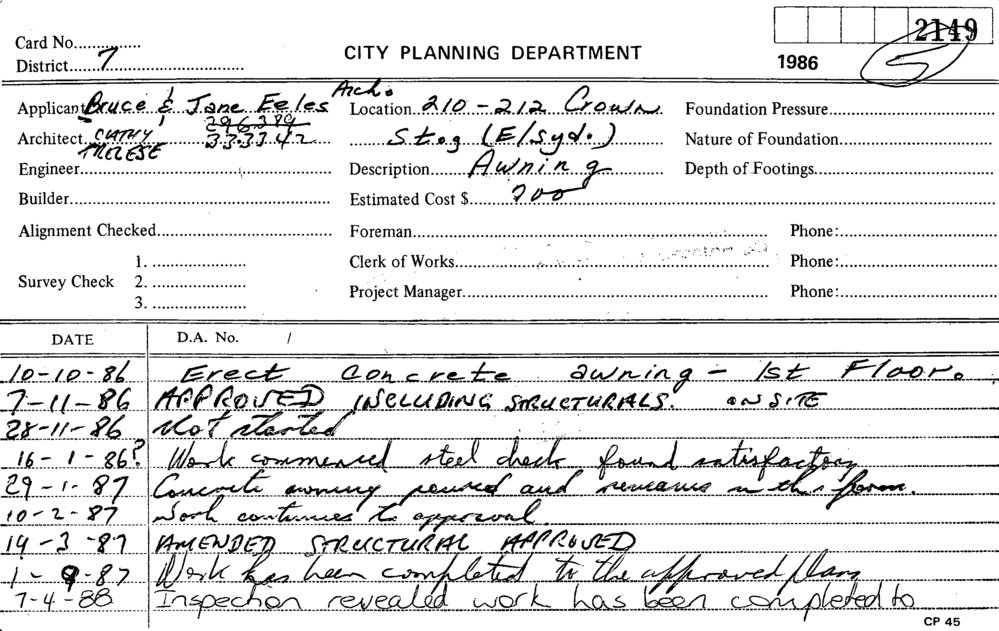 2149
Card No..............
District.....7...........
CITY PLANNING DEPARTMENT
1986
5
Applicant Bruce & Jane Eeles Arch.
Location 210-212 Crown
Foundation Pressure
296380
Architect CATHY 333342
THERESE
St. (E/Syd.)
Nature of Foundation
Engineer
Description Awning
Depth of Footings
Builder
Estimated Cost $ 700
Alignment Checked
Foreman
Phone:
Clerk of Works
Phone:
Survey Check 1.
2.
3.
Project Manager
Phone:
DATE D.A. No. /
10-10-86 Erect concrete awning - 1st Floor.
7-11-86 APPROVED INCLUDING STRUCTURALS. ON SITE
28-11-86 Not started
16-1-86? Work commenced steel check found satisfactory
29-1-87 Concrete awning poured and remains in the form.
10-2-87 Work continues to approval.
14-3-87 AMENDED STRUCTURAL APPROVED
1-9-87 Work has been completed to the approved plans
7-4-88 Inspection revealed work has been completed to
CP 45